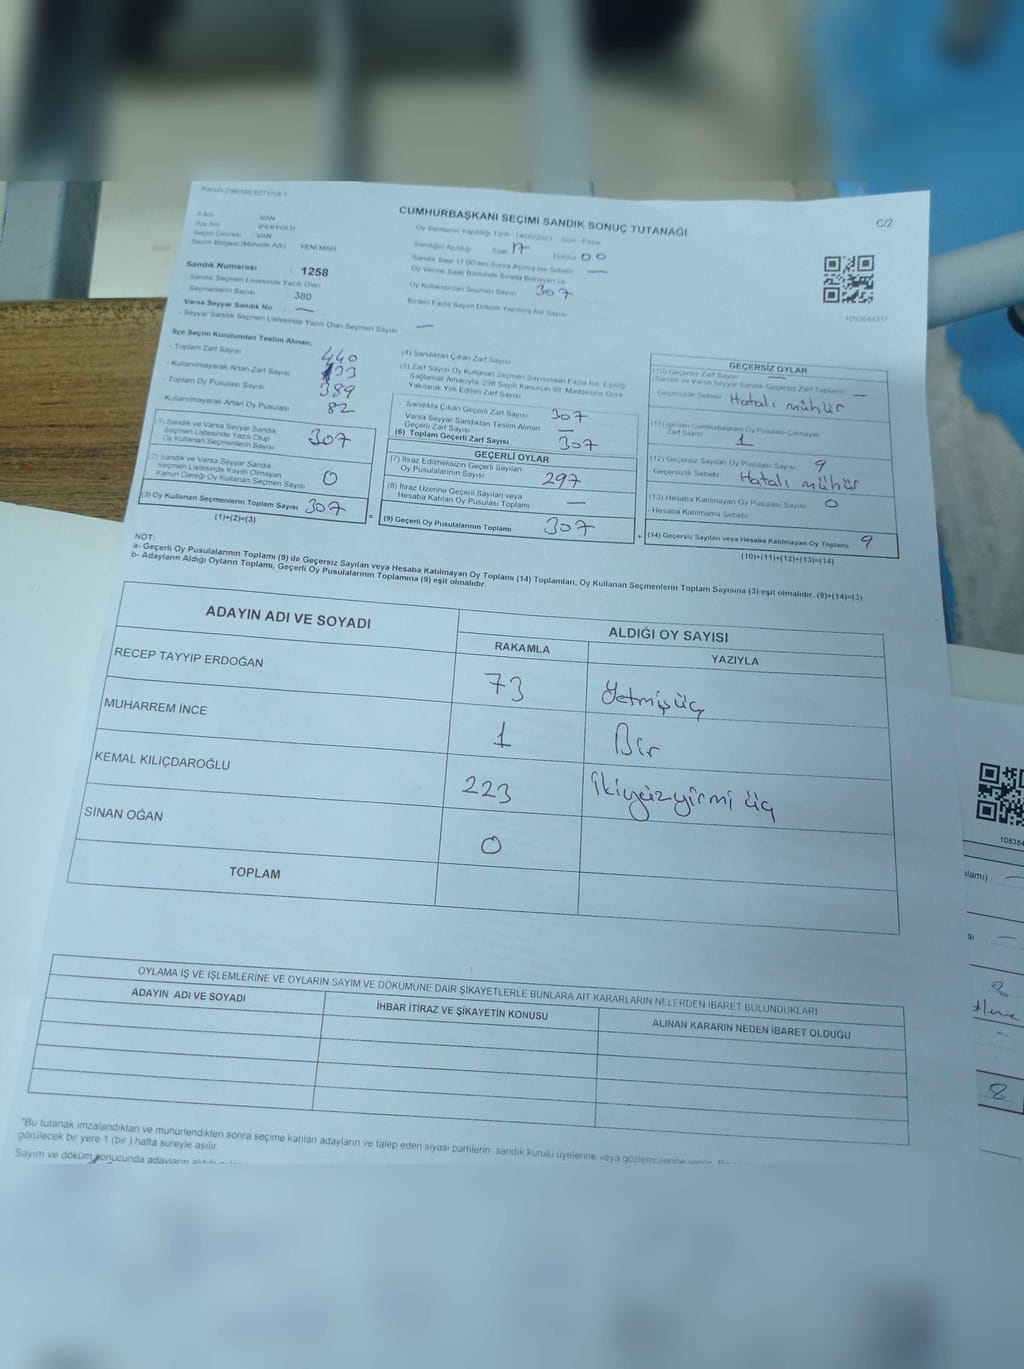 CUMHURBAŞKANI SEÇİMİ SANDIK SONUÇ TUTANAĞI
C/2
İl Adı VAN
İlçe Adı İPEKYOLU
Seçim Çevresi VAN
Seçim Bölgesi (Mahalle Adı) YENİ MAH
Sandık Numarası : 1258
- Sandık Seçmen Listesinde Yazılı Olan
Seçmenlerin Sayısı : 380
Varsa Seyyar Sandık No : —
- Seyyar Sandık Seçmen Listesinde Yazılı Olan Seçmen Sayısı —
Oy Vermenin Yapıldığı Tarih : 14/05/2023 Gün : Pazar
Sandığın Açıldığı Saat 17 Dakika 00
Sandık Saat 17:00'den Sonra Açılmış İse Sebebi —
Oy Verme Saati Bitiminde Sırada Bekleyen ve
Oy Kullandırılan Seçmen Sayısı 307
Birden Fazla Sayım Döküm Yapılmış İse Sayısı
1093844317
İlçe Seçim Kurulundan Teslim Alınan;
- Toplam Zarf Sayısı 440
- Kullanılmayarak Artan Zarf Sayısı 133
- Toplam Oy Pusulası Sayısı 389
- Kullanılmayarak Artan Oy Pusulası 82
(1) Sandık ve Varsa Seyyar Sandık
Seçmen Listesinde Yazılı Olup
Oy Kullanan Seçmenlerin Sayısı 307
(2) Sandık ve Varsa Seyyar Sandık
Seçmen Listesinde Kayıtlı Olmayan
Kanun Gereği Oy Kullanan Seçmen Sayısı 0
(3) Oy Kullanan Seçmenlerin Toplam Sayısı 307
(1)+(2)=(3)
=
(4) Sandıktan Çıkan Zarf Sayısı
(5) Zarf Sayısı Oy Kullanan Seçmen Sayısından Fazla İse, Eşitliği
Sağlamak Amacıyla, 298 Sayılı Kanunun 98. Maddesine Göre
Yakılarak Yok Edilen Zarf Sayısı
Sandıkta Çıkan Geçerli Zarf Sayısı 307
Varsa Seyyar Sandıktan Teslim Alınan
Geçerli Zarf Sayısı —
(6) Toplam Geçerli Zarf Sayısı 307
GEÇERLİ OYLAR
(7) İtiraz Edilmeksizin Geçerli Sayılan
Oy Pusulalarının Sayısı 297
(8) İtiraz Üzerine Geçerli Sayılan veya
Hesaba Katılan Oy Pusulası Toplamı —
(9) Geçerli Oy Pusulalarının Toplamı 307
+
GEÇERSİZ OYLAR
(10) Geçersiz Zarf Sayısı
(Sandık ve Varsa Seyyar Sandık Geçersiz Zarf Toplamı) —
- Geçersizlik Sebebi Hatalı mühür
(11) İçinden Cumhurbaşkanı Oy Pusulası Çıkmayan
Zarf Sayısı 1
(12) Geçersiz Sayılan Oy Pusulası Sayısı 9
- Geçersizlik Sebebi Hatalı mühür
(13) Hesaba Katılmayan Oy Pusulası Sayısı 0
- Hesaba Katılmama Sebebi
(14) Geçersiz Sayılan veya Hesaba Katılmayan Oy Toplamı 9
(10)+(11)+(12)+(13)=(14)
NOT:
a- Geçerli Oy Pusulalarının Toplamı (9) ile Geçersiz Sayılan veya Hesaba Katılmayan Oy Toplamı (14) Toplamları, Oy Kullanan Seçmenlerin Toplam Sayısına (3) eşit olmalıdır. (9)+(14)=(3)
b- Adayların Aldığı Oyların Toplamı, Geçerli Oy Pusulalarının Toplamına (9) eşit olmalıdır.
ADAYIN ADI VE SOYADI
ALDIĞI OY SAYISI
RAKAMLA YAZIYLA
RECEP TAYYİP ERDOĞAN 73 Yetmişüç
MUHARREM İNCE 1 Bir
KEMAL KILIÇDAROĞLU 223 ikiyüzyirmi üç
SİNAN OĞAN 0
TOPLAM
OYLAMA İŞ VE İŞLEMLERİNE VE OYLARIN SAYIM VE DÖKÜMÜNE DAİR ŞİKAYETLERLE BUNLARA AİT KARARLARIN NELERDEN İBARET BULUNDUKLARI
ADAYIN ADI VE SOYADI İHBAR İTİRAZ VE ŞİKAYETİN KONUSU ALINAN KARARIN NEDEN İBARET OLDUĞU
*Bu tutanak imzalandıktan ve mühürlendikten sonra seçime katılan adayların ve talep eden siyasi partilerin sandık kurulu üyelerine veya gözlemcilerine
görülecek bir yere 1 (bir ) hafta süreyle asılır.
Sayım ve döküm sonucunda adayların aldığı
8